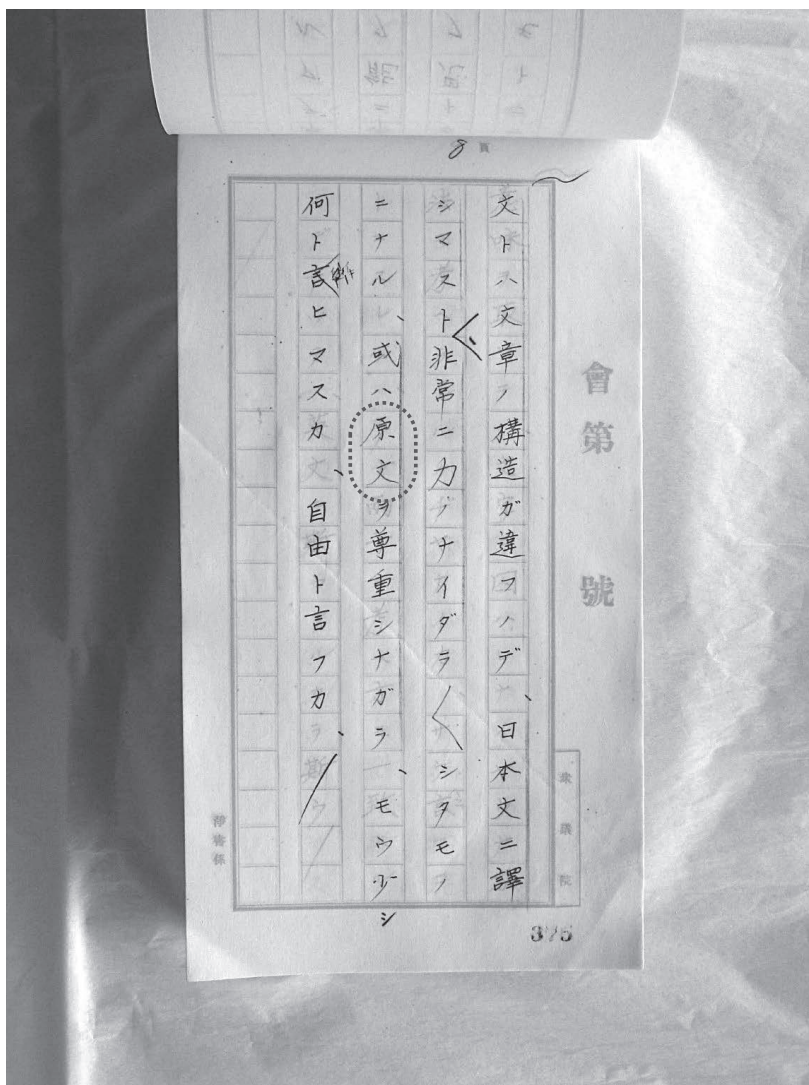 8 頁
會第 號
文トハ文章ノ構造ガ違フノデ、日本文ニ譯
シマスト非常ニ力ノナイダラ〱シタモノ
ニナル、或ハ原文ヲ尊重シナガラ、モウ少シ
何ト言ヒマスカ、自由ト言フカ、
衆議院
375